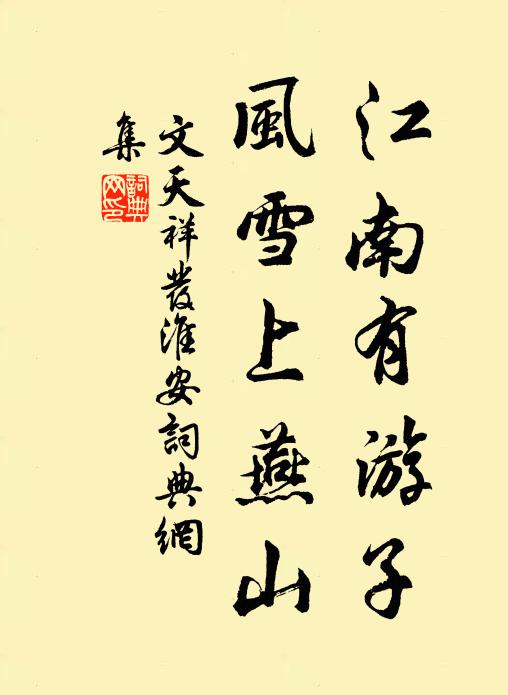 江南有游子
風雪上燕山
文天祥發淮安詞典網
集
詞典網印